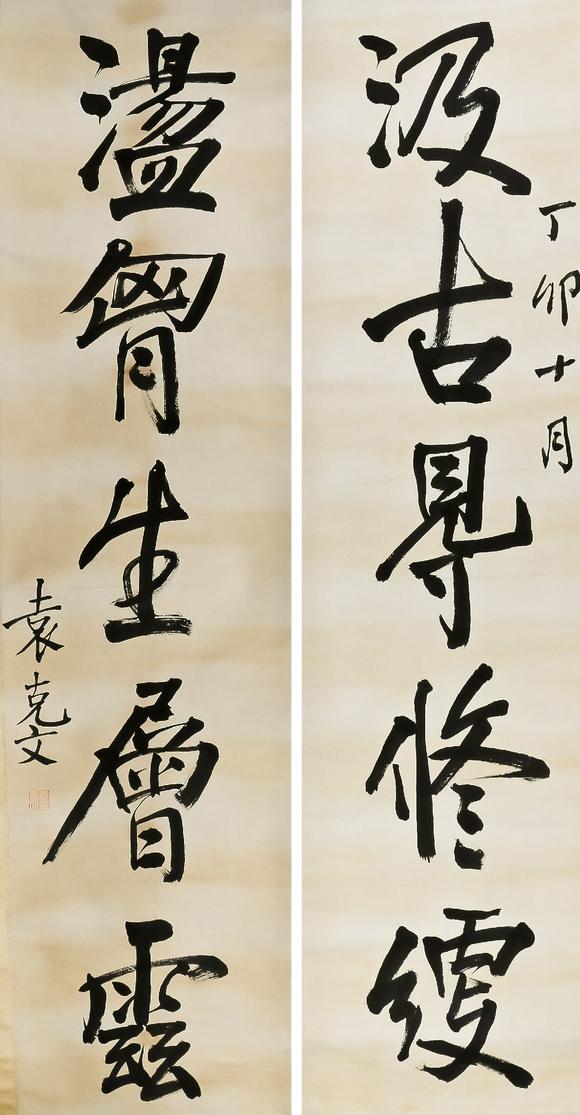 丁卯十月
汲古䙷修綆
盪胷生層雲
袁克文